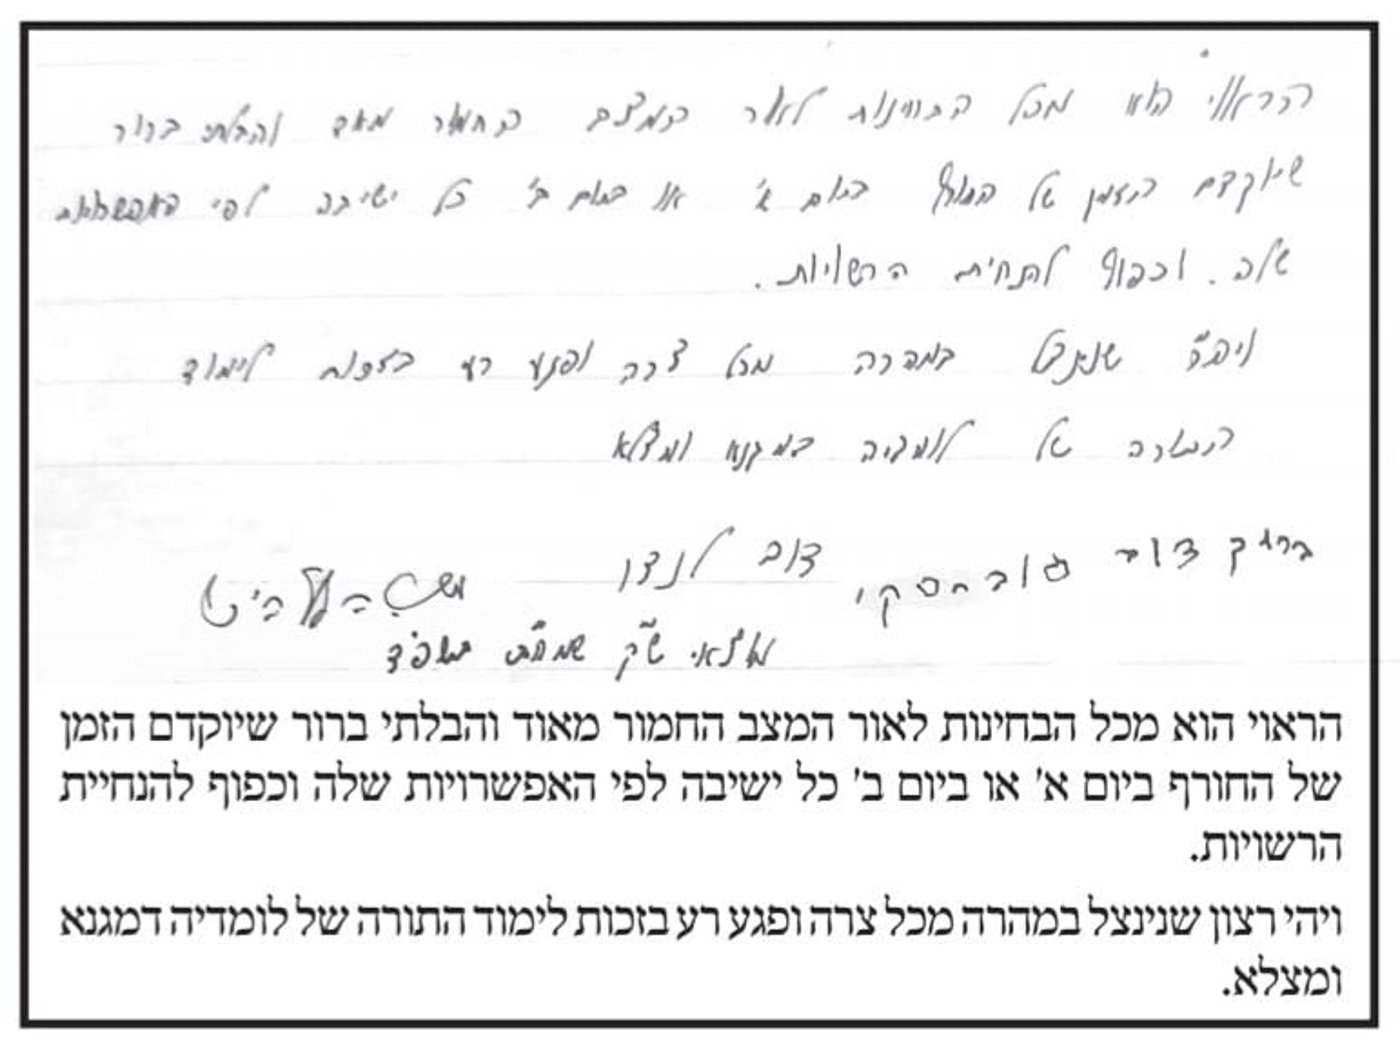 הראוי הוא מכל הבחינות לאור המצב החמור מאד והבלתי ברור
שיוקדם הזמן של החורף ביום א' או ביום ב' כל ישיבה לפי האפשרויות
שלה. וכפוף להנחית הרשויות.
ויה"ר שננצל במהרה מכל צרה ופגע רע בזכות לימוד
התורה של לומדיה דמגנא ומצלא
ברוך דוב פוברסקי דוב לנדו משה הלל הירש
מוצאי ש"ק שמח"ת תשפ"ד
הראוי הוא מכל הבחינות לאור המצב החמור מאוד והבלתי ברור שיוקדם הזמן
של החורף ביום א' או ביום ב' כל ישיבה לפי האפשרויות שלה וכפוף להנחיית
הרשויות.
ויהי רצון שנינצל במהרה מכל צרה ופגע רע בזכות לימוד התורה של לומדיה דמגנא
ומצלא.